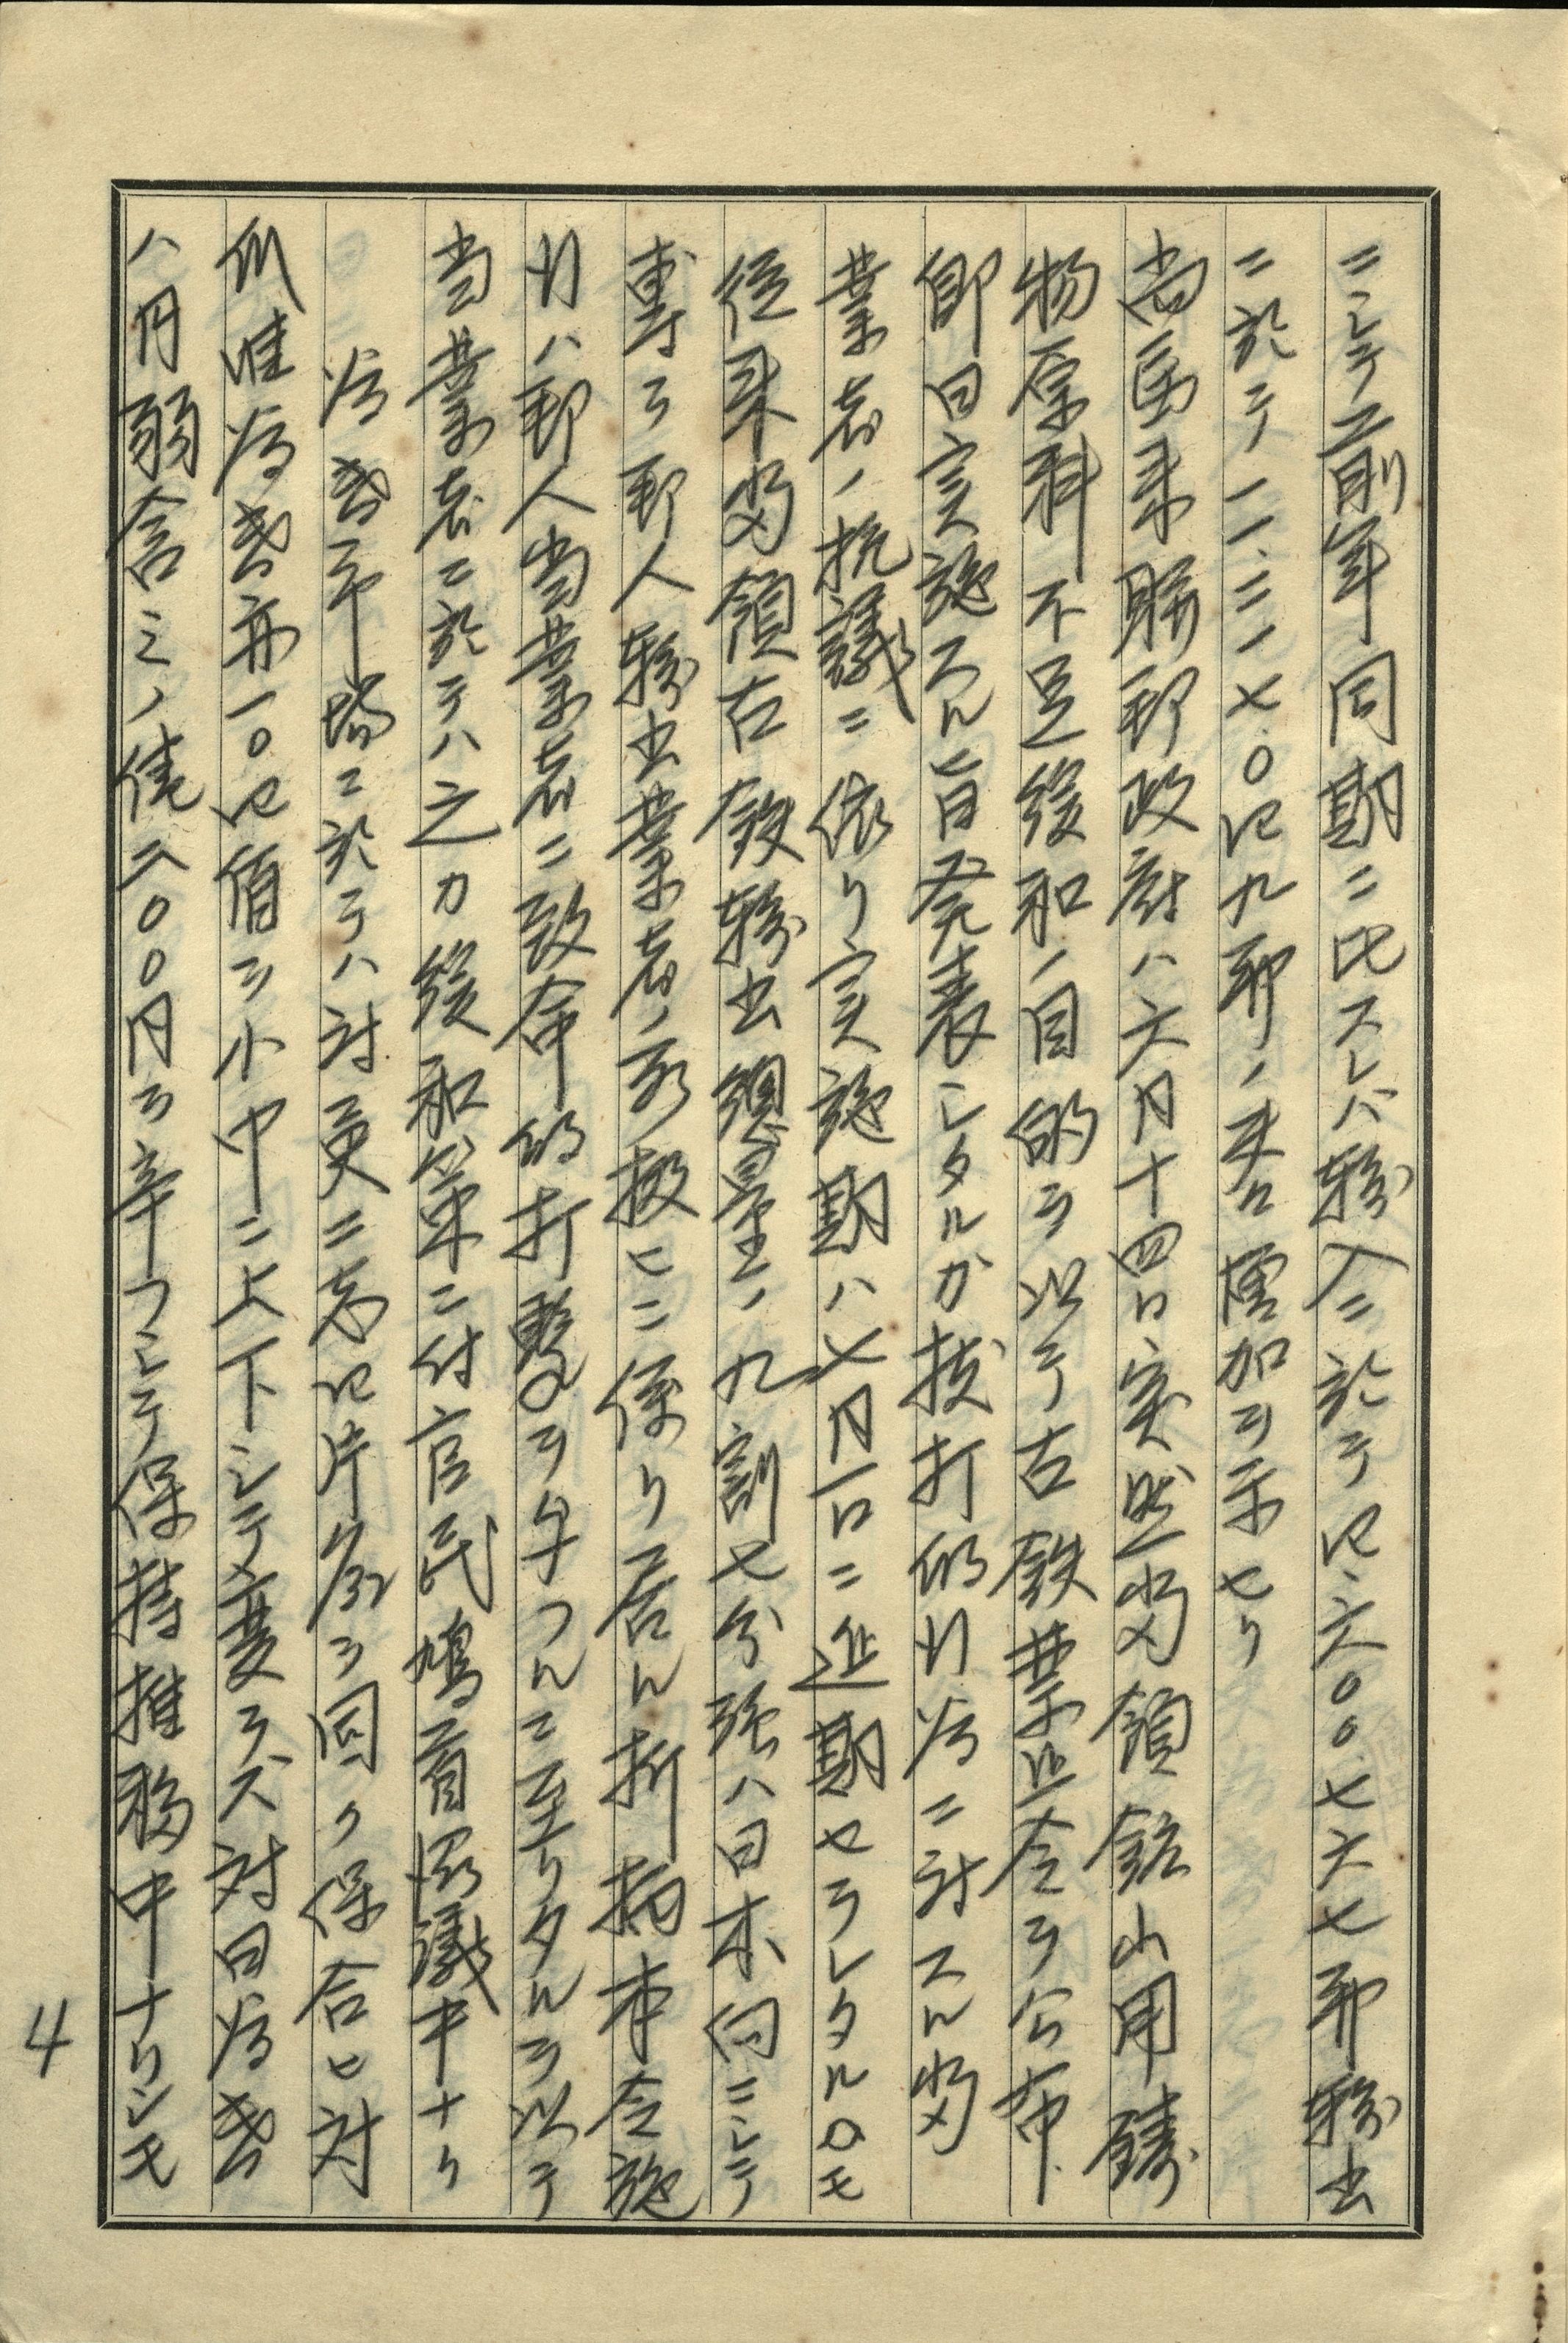 ニシテ之ヲ前年同期ニ比スレバ輸入ニ於テ四、六〇〇、七六七弗輸出
ニ於テ一一、二一七、〇四九弗ノ夫々増加ヲ示セリ
尚馬来聯邦政府ハ六月十四日突然当領鉱山用鋳
物原料不足緩和ノ目的ヲ以テ古鉄禁止令ヲ公布
即日実施スル旨発表シタルガ抜打的ニ対スル当
業者ノ抗議ニ依リ実施期ハ七月一日ニ延期セラレタルモ
従来当領古鉄輸出総量ノ九割七分強ハ日本向ニシテ
専ラ邦人輸出業者ノ取扱ヒニ係リ居ル折柄本令施
行ハ邦人当業者ニ致命的打撃ヲ与フルニ至リタルヲ以テ
当業者ニ於テハ之カ緩和策ニ付官民鳩首協議中ナリ
為替市場ニ於テハ対英二志四片ヲ固ク保合ヒ対
米為替亦一〇四仙ヲ小巾ニ上下シテ変ラズ対日為替
八円弱含ミノ儘二〇〇円ヲ辛フシテ保持推移中ナリシモ
4